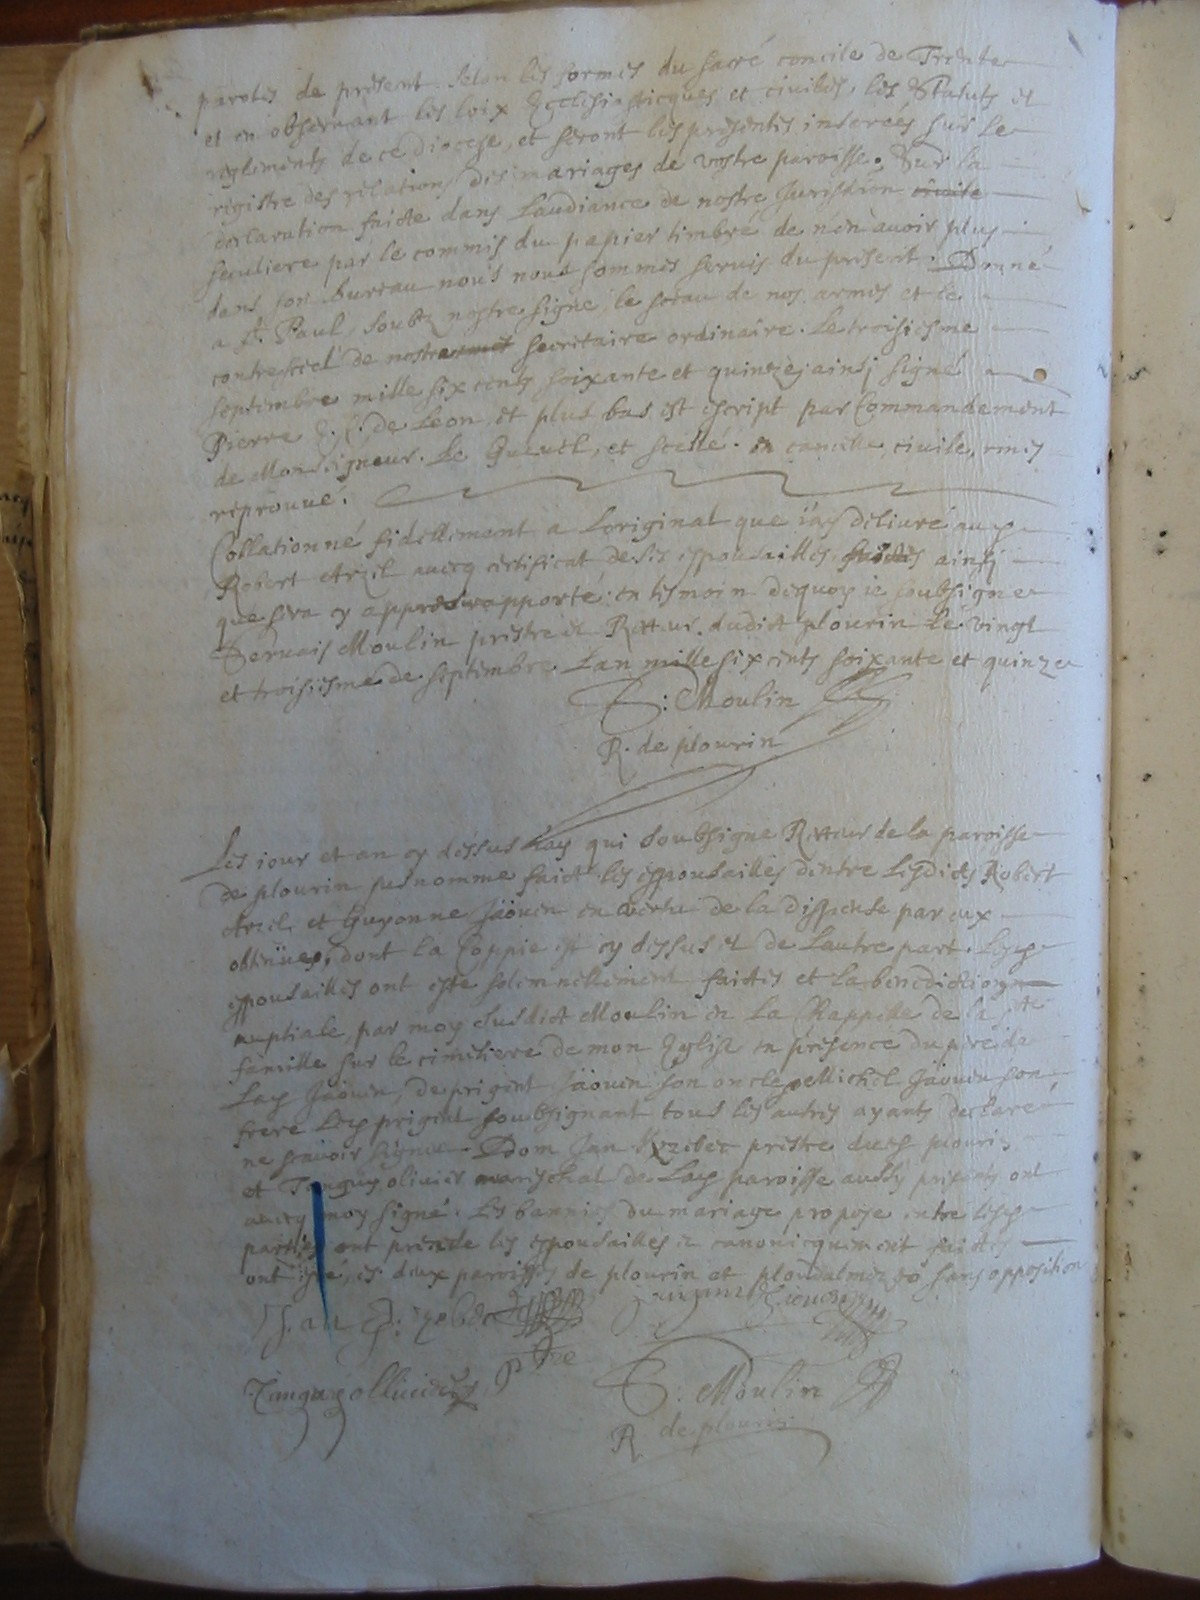 parolles de présent selon les formes du sacré concile de Trente
et en observant les loix Ecclesiasticques et civiles, les Statuts et
reglements de ce diocese, et seront les presentes inserées sur le
registre des relations des mariages de vostre paroisse. Sur la
declaration faicte dans Laudiance de nostre Jurisdiction civile
seculiere par le commis du papier timbré de nen avoir plus
dans son bureau nous nous sommes servis du present. Donné
a St. Paul, soubz nostre signe, le sceau de nos armes et le
contreseel de nostre secretaire ordinaire. Le troisiesme
septembre mille six cents soixante et quinze, ainsj signé
Pierre E. C. de Leon, et plus bas est escript par Commandement
de Monseigneur. Le et scellé. civile,
reprouué.
Collationné fidellement a Loriginal que i'ay deliuré audt
Robert avecq certificat de ses espousailles faictes ainsj
que sera cy appres rapporté en tesmoin dequoy ie soubsigne
Servais Moulin prestre et Recteur dudict plourin Le vingt
et troisiesme de septembre Lan mille six cents soixante et quinze
S: Moulin
R. de plourin
Les iour et an cy dessus Lay qui soubsigne Recteur de la paroisse
de plourin susnommé faict les espousailles dentre Lesdicts Robert
et Guyonne Jaouen en vertu de la dispense par eux
obtenues, dont la Coppie est cy dessus et de Lautre part. Lesd
espousailles ont esté solemnellement faictes et la benediction
nuptiale, par moy susdict Moulin en La Chappelle de la ste
famille sur le cimetiere de mon Eglise en présence du père de
Lad Jaouen, de prigent Jaouen son oncle, Michel Jaouen son
frere Led prigent soubsignant tous les autres ayants declaré
ne scavoir signer. Dom Jan prestre dud plourin
et Tanguy olivier mareschal de Lad paroisse aussy présents ont
avecq moy signé. Les bannies du mariage proposé entre lesd
parties ont précédé les espousailles et canonicquement faictes
ont esté, es deux paroisses de plourin et ploudalmezeo sans opposition
Jan ptre
Tanguy ollivier
S: Moulin
R de plourin